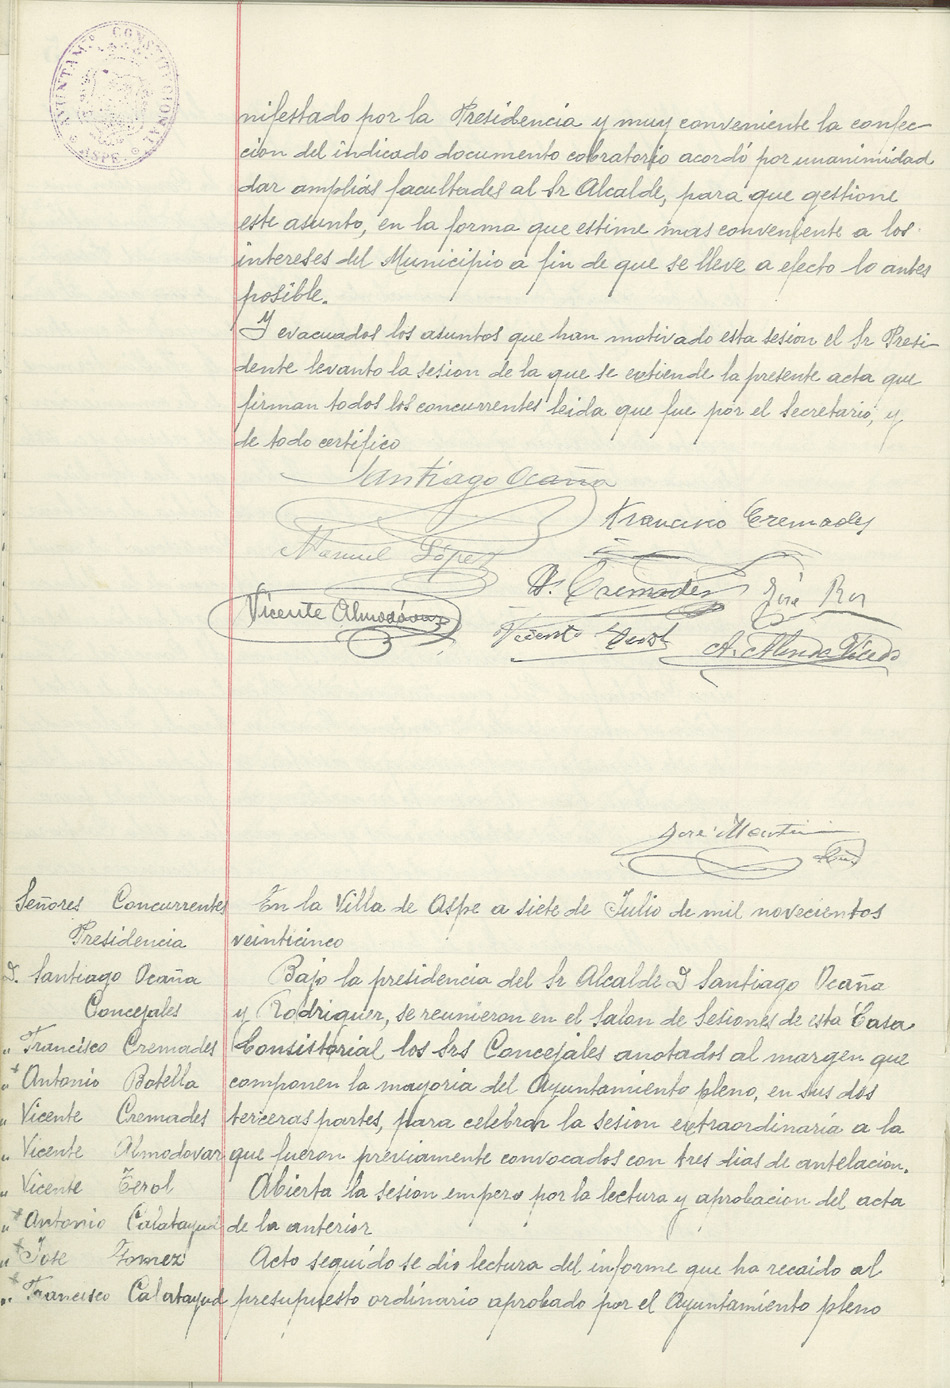 AYUNTAMº CONSTITUCIONAL
ASPE
nifestado por la Presidencia y muy conveniente la confec-
cion del indicado documento cobratorio acordó por unanimidad
dar amplias facultades al Sr Alcalde, para que gestione
este asunto, en la forma que estime mas conveniente a los
intereses del Municipio a fin de que se lleve a efecto lo antes
posible.
Y evacuados los asuntos que han motivado esta sesion el Sr Presi-
dente levanto la sesion de la que se extiende la presente acta que
firman todos los concurrentes leida que fue por el secretario, y
de todo certifico
Santiago Ocaña
Francisco Cremades
Manuel López
V. Cremades José
Vicente Almodóvar
Vicente
A. Vicedo
José
Señores Concurrentes
Presidencia
D. Santiago Ocaña
Concejales
" Francisco Cremades
" Antonio Botella
" Vicente Cremades
" Vicente Almodovar
" Vicente Terol
" Antonio Calatayud
" Jose Gomez
" Francisco Calatayud
En la Villa de Aspe a siete de Julio de mil novecientos
veinticinco
Bajo la presidencia del Sr Alcalde D Santiago Ocaña
y Rodriguez, se reunieron en el Salon de Sesiones de esta Casa
Consistorial los Srs Concejales anotados al margen que
componen la mayoria del Ayuntamiento pleno, en sus dos
terceras partes, para celebrar la sesion extraordinaria a la
que fueron previamente convocados con tres dias de antelacion.
Abierta la sesion empezo por la lectura y aprobacion del acta
de la anterior
Acto seguido se dio lectura del informe que ha recaido al
presupuesto ordinario aprobado por el Ayuntamiento pleno